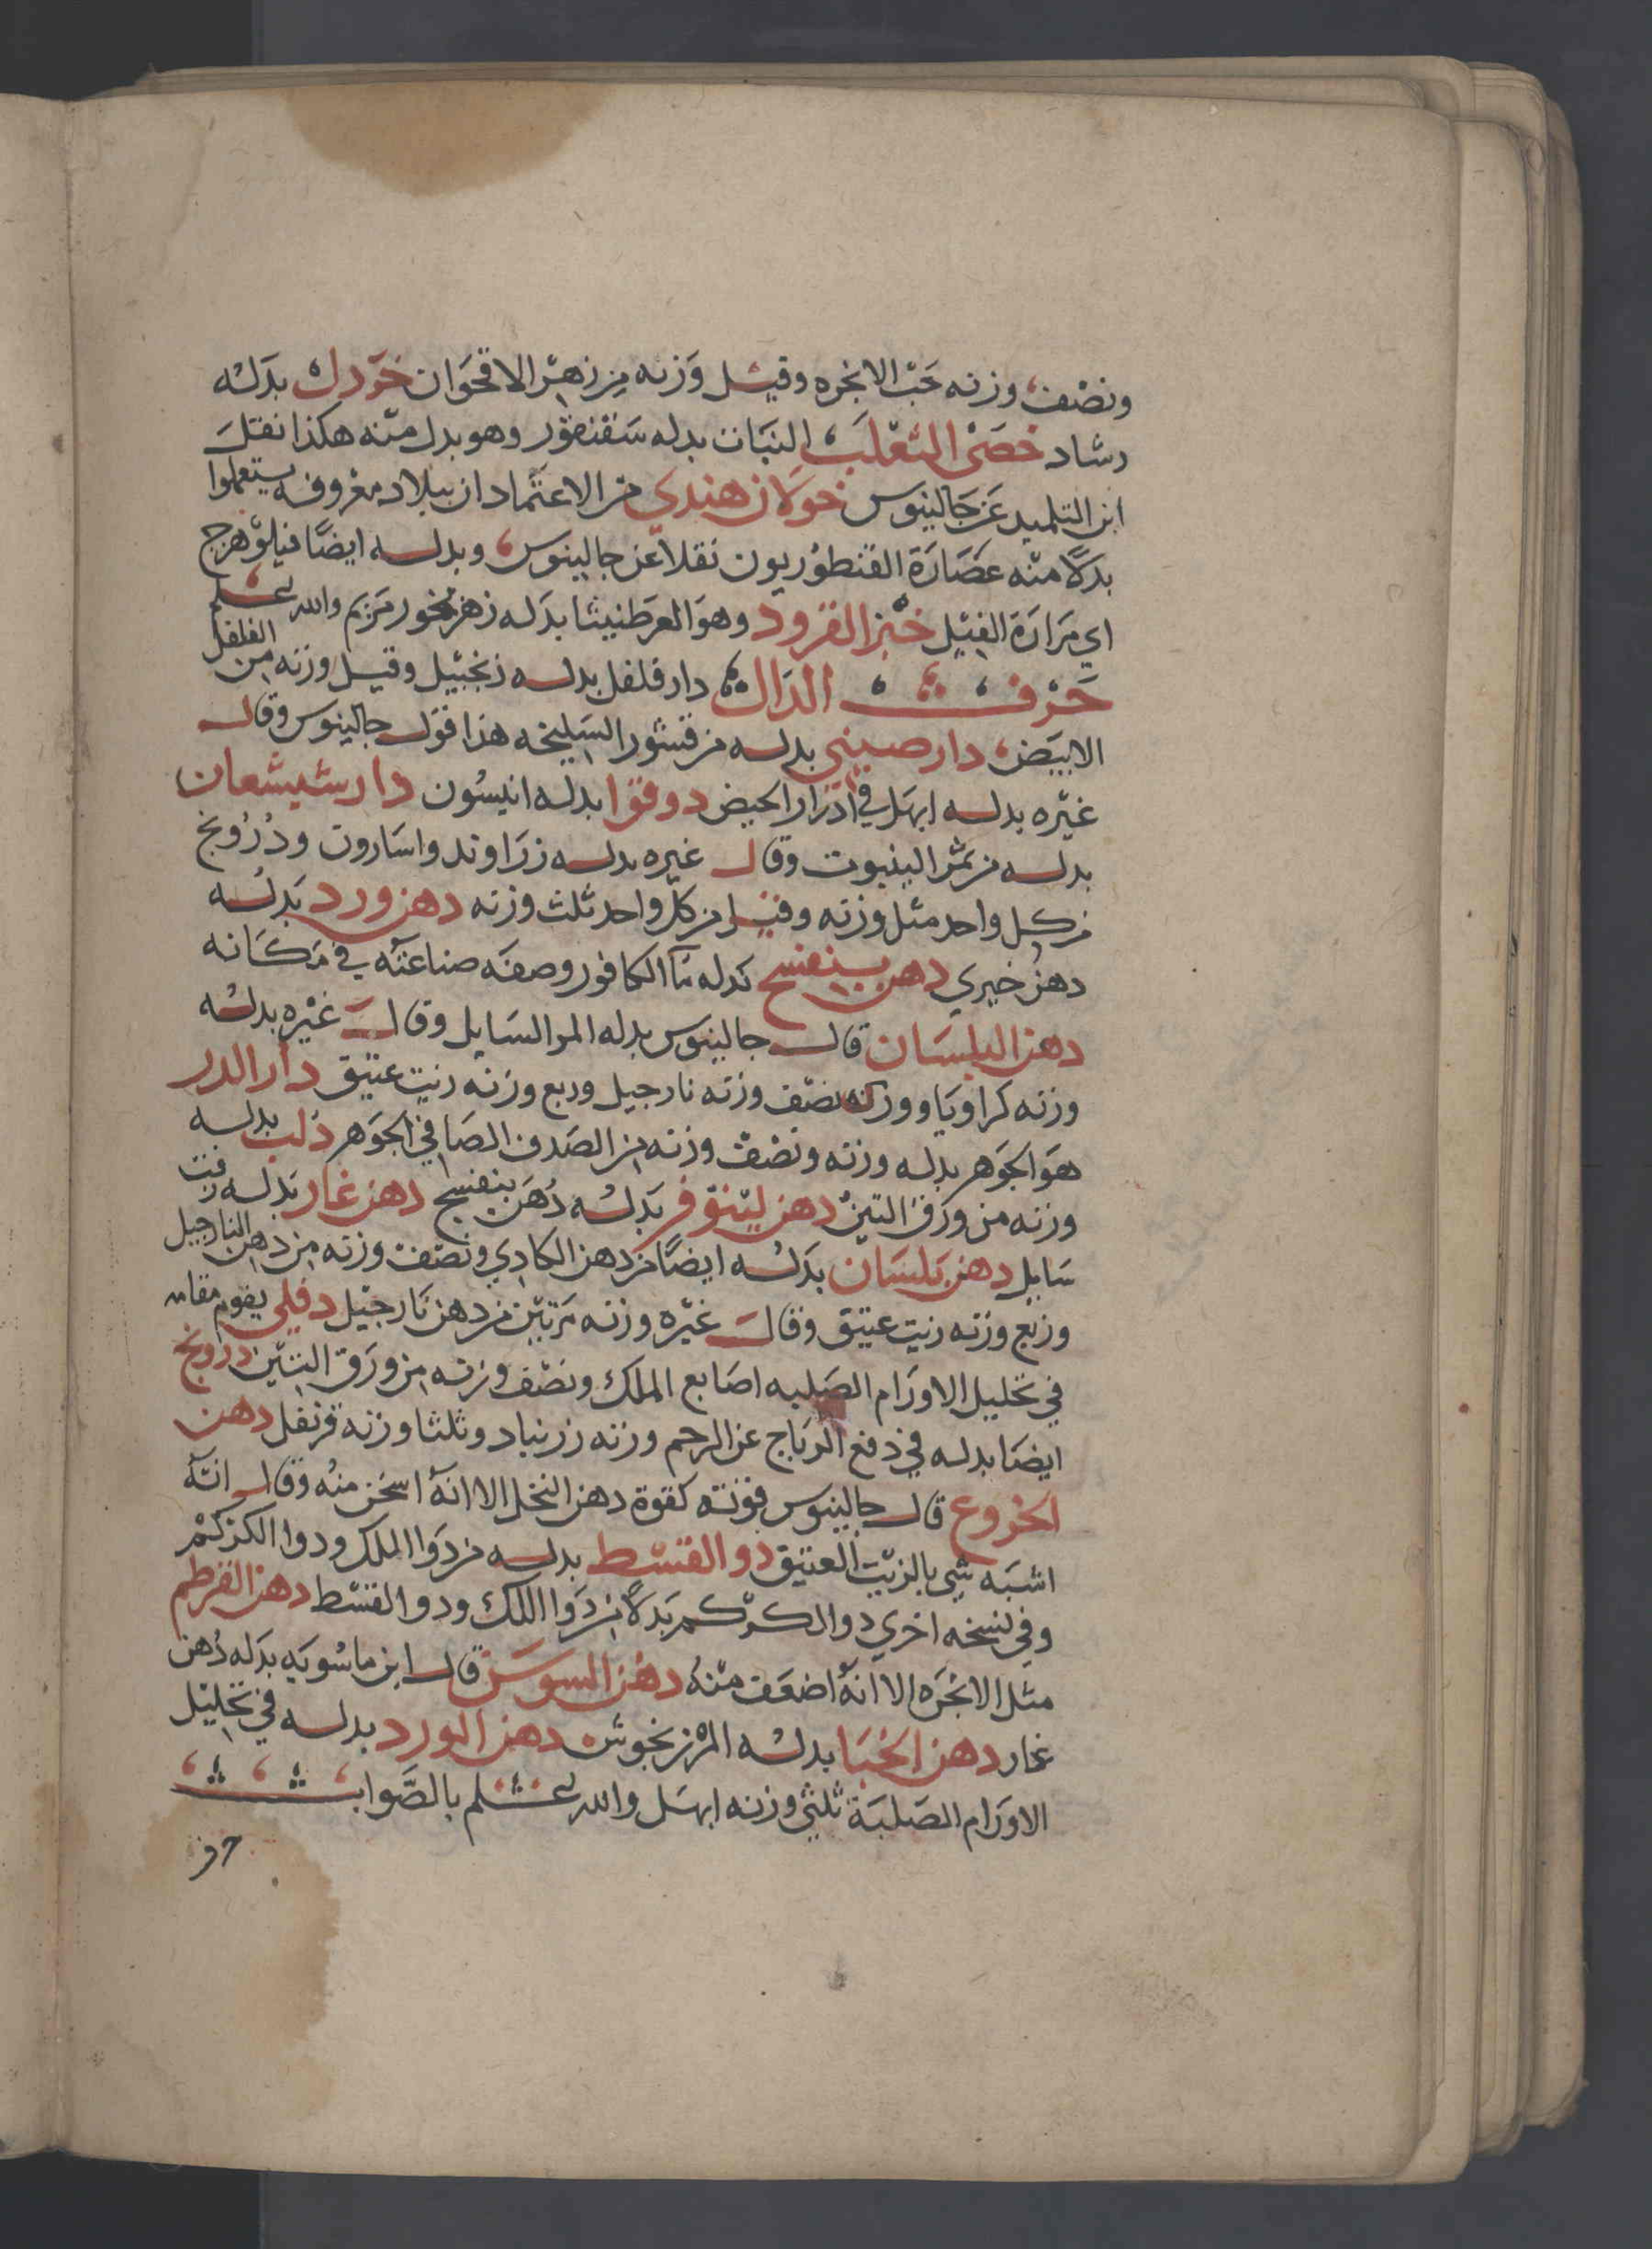 ونصف وزنه حب الانجره وقيل وزنه من زهر الاقحوان خردل بدله
رشاد خصى الثعلب النبات بدله سقنقور وهو بدل منه هكذا نقل
ابن التلميد عن جالينوس خولان هندي من الاعتماد ان ببلاد معروفه يستعملوا
بدلاً منه عصارة القنطوريون نقلا عن جالينوس وبدله ايضًا فيلزهرج
اي مرارة الفيل خبز القرود وهو العرطنيثا بدله زهر بخور مريم والله اعلم
حرف الدال دار فلفل بدله زنجبيل وقيل وزنه من الفلفل
الابيض دار صيني بدله من قشور السليخه هذا قول جالينوس وقال
غيره بدله ابهل في ادرار الحيض دوقوا بدله انيسون دار شيشعان
بدله من ثمر الينبوت وقال غيره بدله زراوند واسارون ودرونج
من كل واحد مثل وزنه وقيل من كل واحد ثلث وزنه دهن ورد بدله
دهن خيري دهن بنفسج بدله ماء الكافور وصفه صناعته في مكانه
دهن البلسان قال جالينوس بدله المر السايل وقال غيره بدله
وزنه كراويا ووزنه نصف وزنه نارجيل وربع وزنه زيت عتيق دار الدر
هو الجوهر بدله وزنه ونصف وزنه من الصدف الصافي الجوهر دلب بدله
وزنه من ورق التين دهن لينوفر بدله دهن بنفسج دهن غار بدله زفت
سايل دهن بلسان بدله ايضًا من دهن الكادي ونصف وزنه من دهن النارجيل
وربع وزنه زيت عتيق وقال غيره وزنه مرتين من دهن نارجيل دفلي يقوم مقامه
في تحليل الاورام الصلبه اصابع الملك ونصف وزنه من ورق التين درونج
ايضا بدله في دفع الرياح عن الرحم وزنه زرنباد وثلثا وزنه قرنفل دهن
الخروع قال جالينوس قوته كقوة دهن النخل الا انه اسخن منه وقال انه
اشبه شي بالزيت العتيق دو القسط بدله من دوا الملك ودوا الكركم
وفي نسخه اخري دوا الكركم بدلاً من دوا اللك ودو القسط دهن القرطم
مثل الانجره الا انه اضعف منه دهن السوسن قال ابن ماسويه بدله دهن
غار دهن الحنا بدله المرزنجوش دهن الورد بدله في تحليل
الاورام الصلبة ثلثي وزنه ابهل والله اعلم بالصواب
حرف